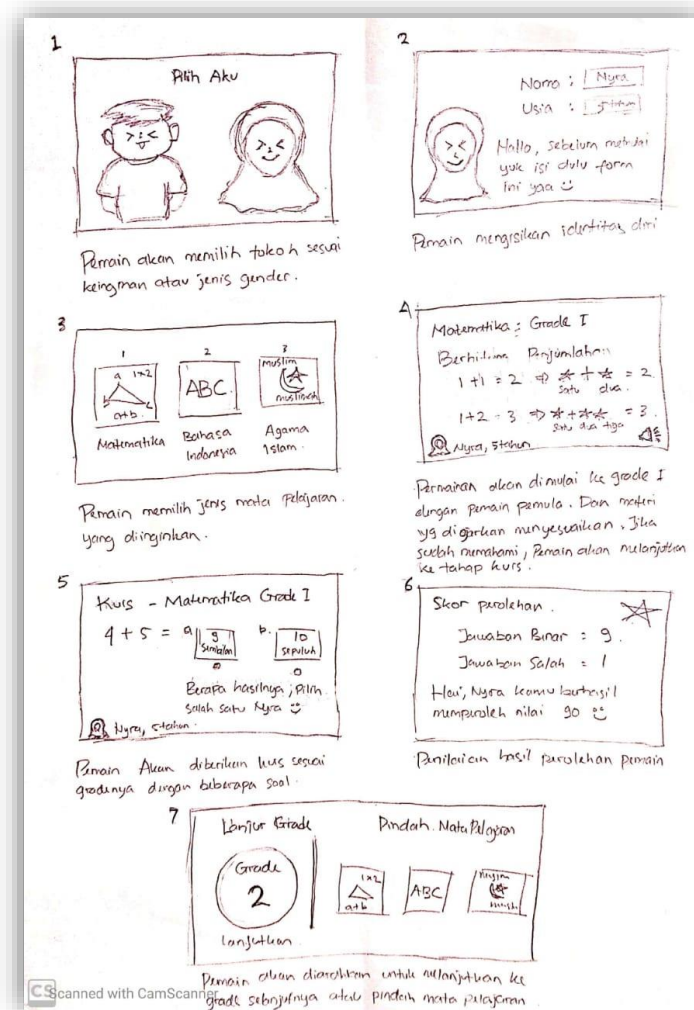 1
Pilih Aku
Pemain akan memilih tokoh sesuai
keinginan atau jenis gender.
2
Nama : Nyra
Usia : 5 tahun
Hallo, sebelum memulai
yuk isi dulu form
ini yaa
Pemain mengisikan identitas diri
3
1 2 3
a 1x2
a+b
ABC
muslim
muslimah
Matematika
Bahasa
Indonesia
Agama
Islam
Pemain memilih jenis mata pelajaran
yang diinginkan.
4
Matematika : Grade I
Berhitung Penjumlahan
1+1 = 2 ⇒ ☆ + ☆ = 2
satu dua
1+2 = 3 ⇒ ☆ + ☆☆ = 3
satu dua tiga
Nyra, 5 tahun
Permainan akan dimulai ke grade I
dengan pemain pemula. Dan materi
yg diajarkan menyesuaikan. Jika
sudah memahami, Pemain akan melanjutkan
ke tahap kuis.
5
Kuis - Matematika Grade I
4 + 5 = a 9 b. 10
sembilan sepuluh
Berapa hasilnya, pilih
salah satu Nyra
Nyra, 5 tahun
Pemain Akan diberikan kuis sesuai
gradenya dengan beberapa soal.
6
Skor perolehan.
Jawaban Benar : 9
Jawaban Salah = 1
Nyra kamu berhasil
memperoleh nilai 90
Penilaian hasil perolehan pemain
7
Lanjut Grade
Pindah Mata Pelajaran
Grade
2
Lanjutkan
1x2
a+b
ABC
Pemain akan diarahkan untuk melanjutkan ke
grade selanjutnya atau pindah mata pelajaran
CS Scanned with CamScanner